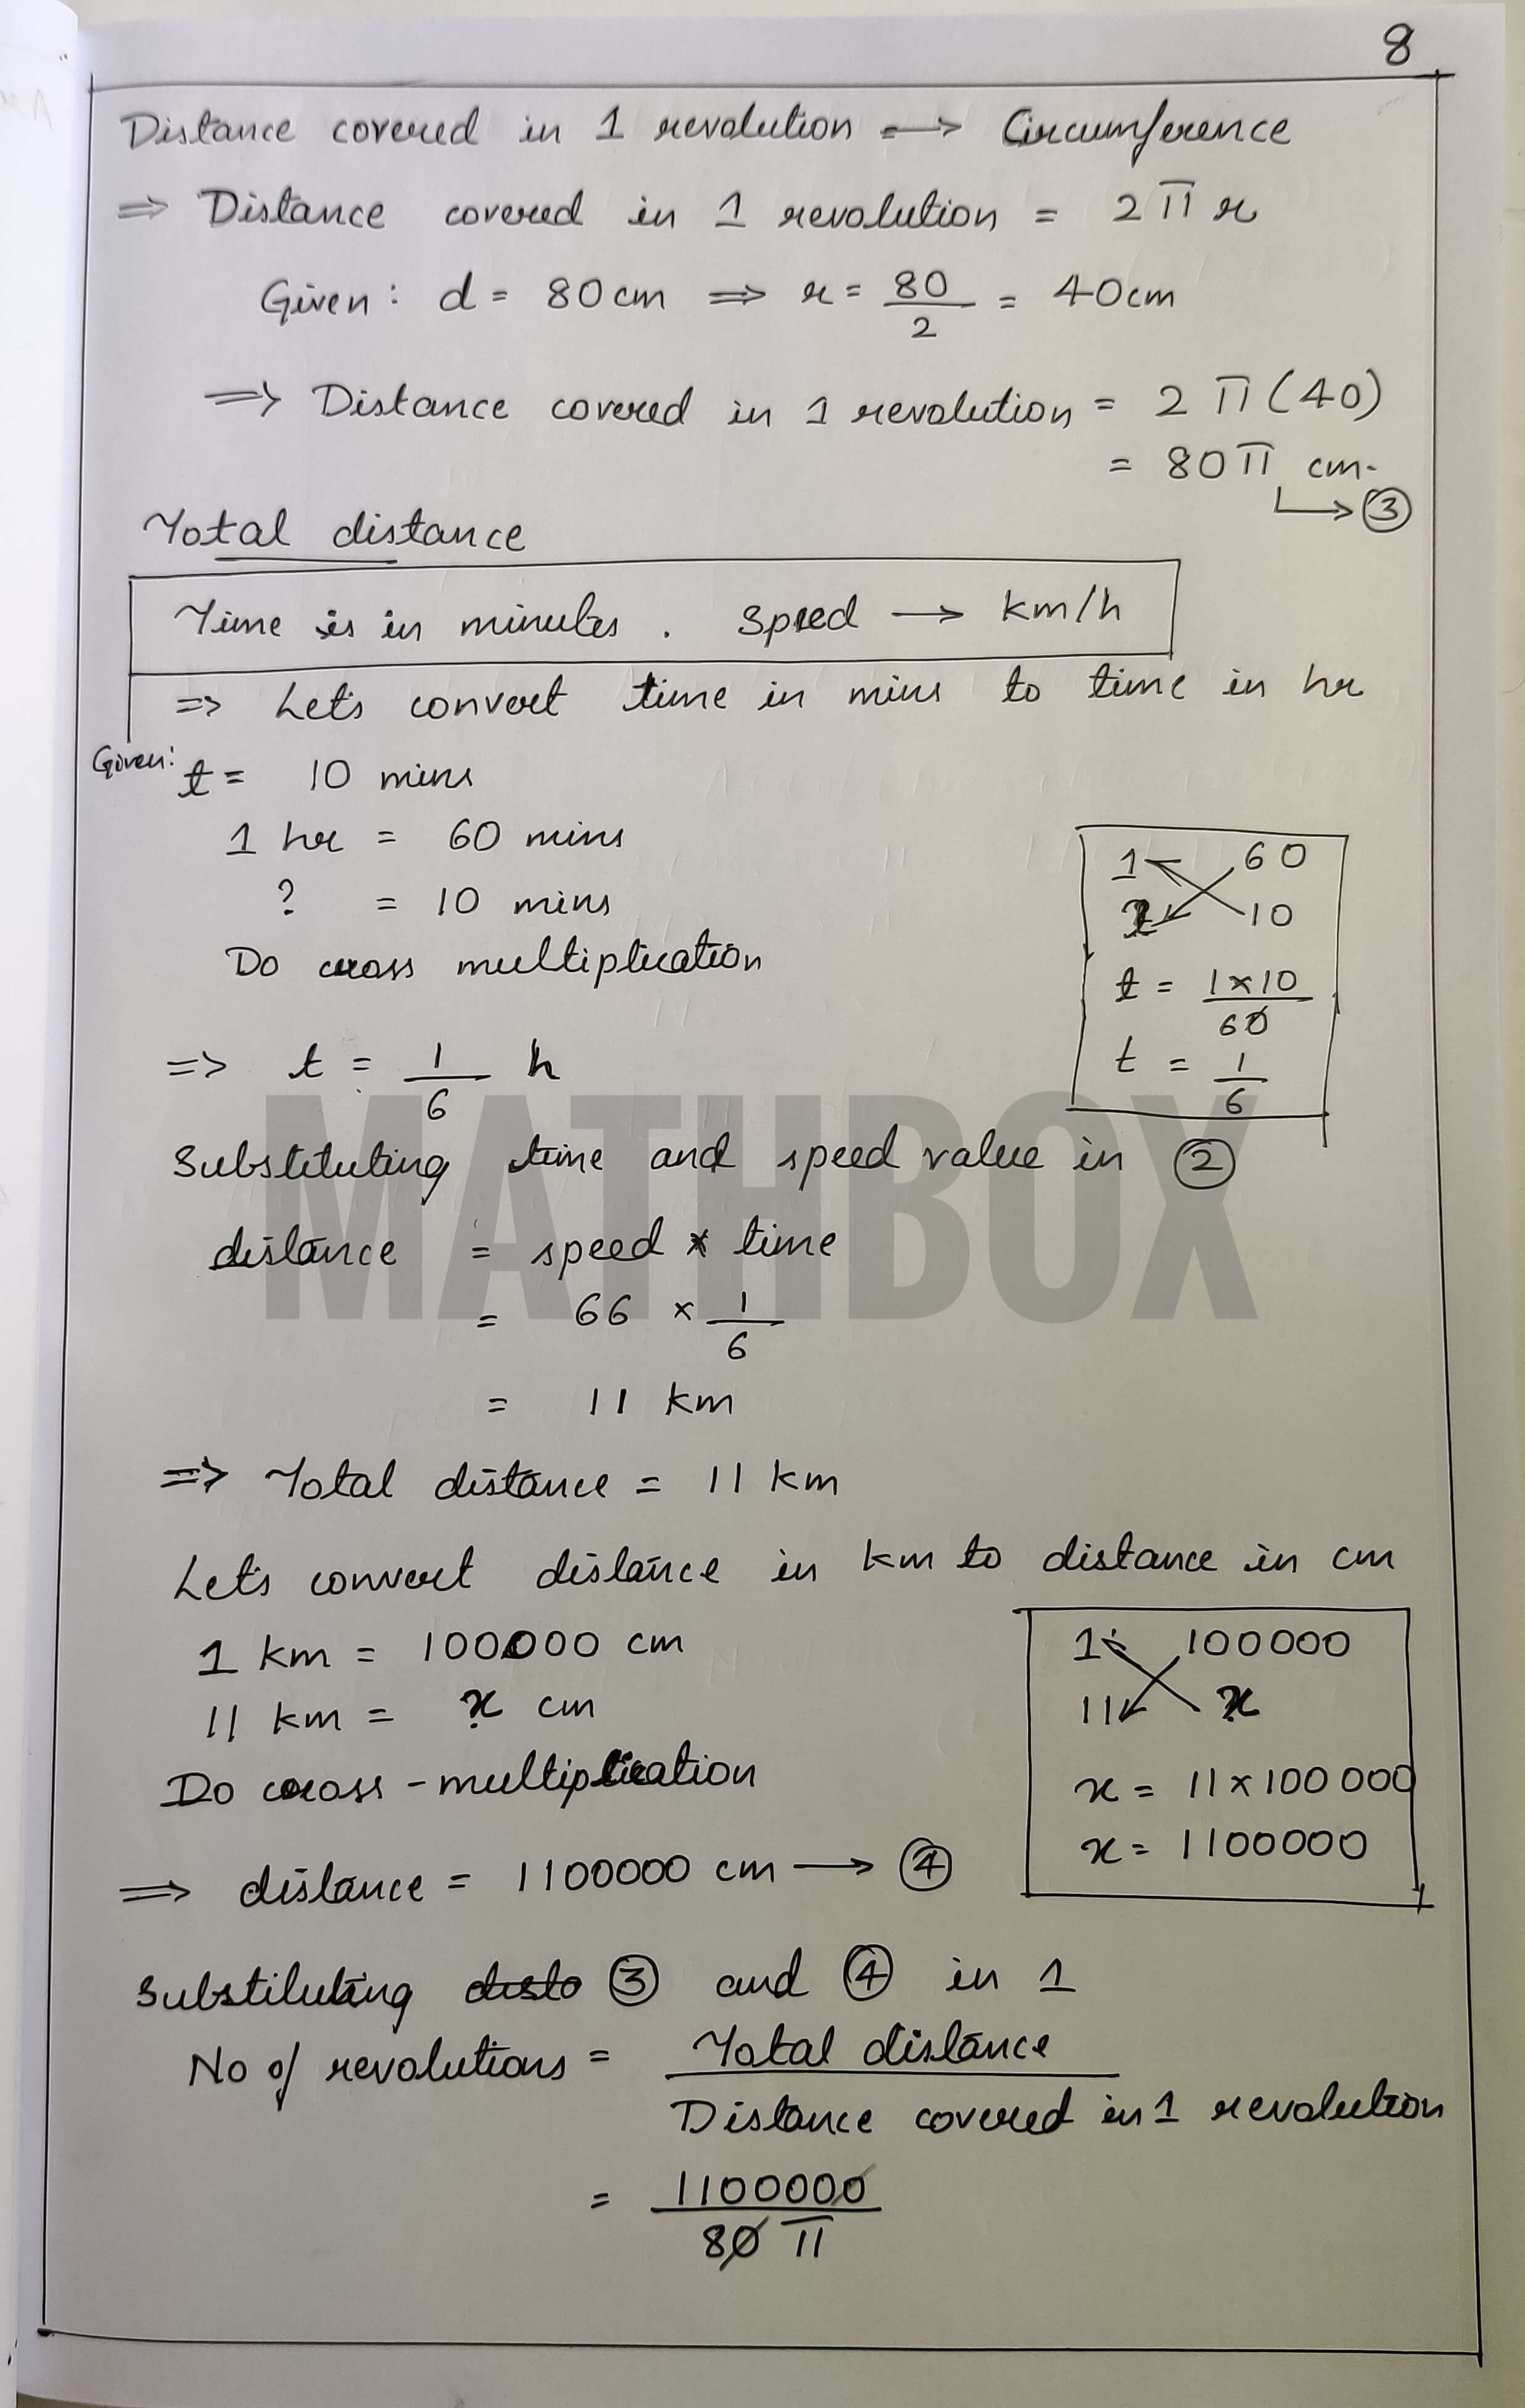 8
Distance covered in 1 revolution => Circumference
=> Distance covered in 1 revolution = 2 π r
Given: d = 80 cm => r = 80/2 = 40cm
=> Distance covered in 1 revolution = 2 π (40)
= 80 π cm.
↳ ③
Total distance
Time is in minutes . Speed → km/h
=> Lets convert time in mins to time in hr
Given: t = 10 mins
1 hr = 60 mins
? = 10 mins
Do cross multiplication
1 60
t 10
t = 1×10/60
t = 1/6
=> t = 1/6 h
MATHBOX
Substituting time and speed value in ②
distance = speed × time
= 66 × 1/6
= 11 km
=> Total distance = 11 km
Lets convert distance in km to distance in cm
1 km = 100000 cm
11 km = x cm
Do cross-multiplication
1 100000
11 x
x = 11×100000
x = 1100000
=> distance = 1100000 cm → ④
Substituting ③ and ④ in 1
No of revolutions = Total distance / Distance covered in 1 revolution
= 1100000 / 80 π